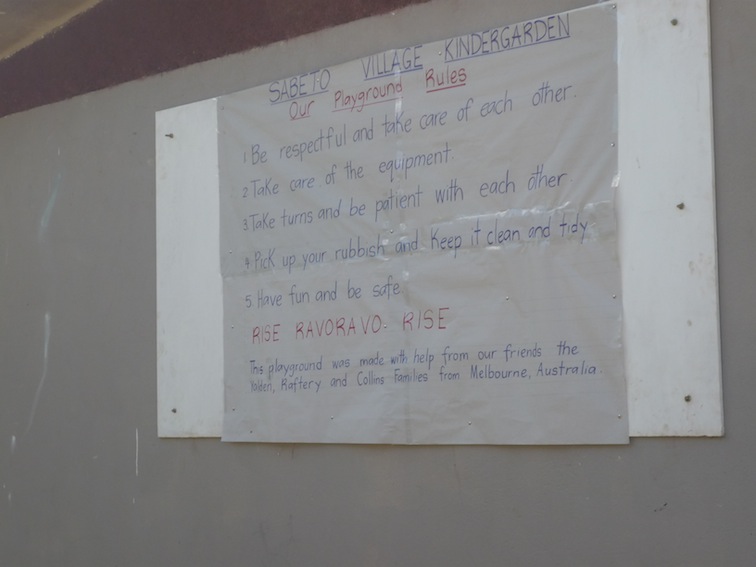 SABETO VILLAGE KINDERGARDEN
Our Playground Rules
1. Be respectful and take care of each other.
2. Take care of the equipment.
3. Take turns and be patient with each other.
4. Pick up your rubbish and keep it clean and tidy
5. Have fun and be safe
RISE RAVORAVO RISE
This playground was made with help from our friends the
Raftery and Collins Families from Melbourne, Australia.